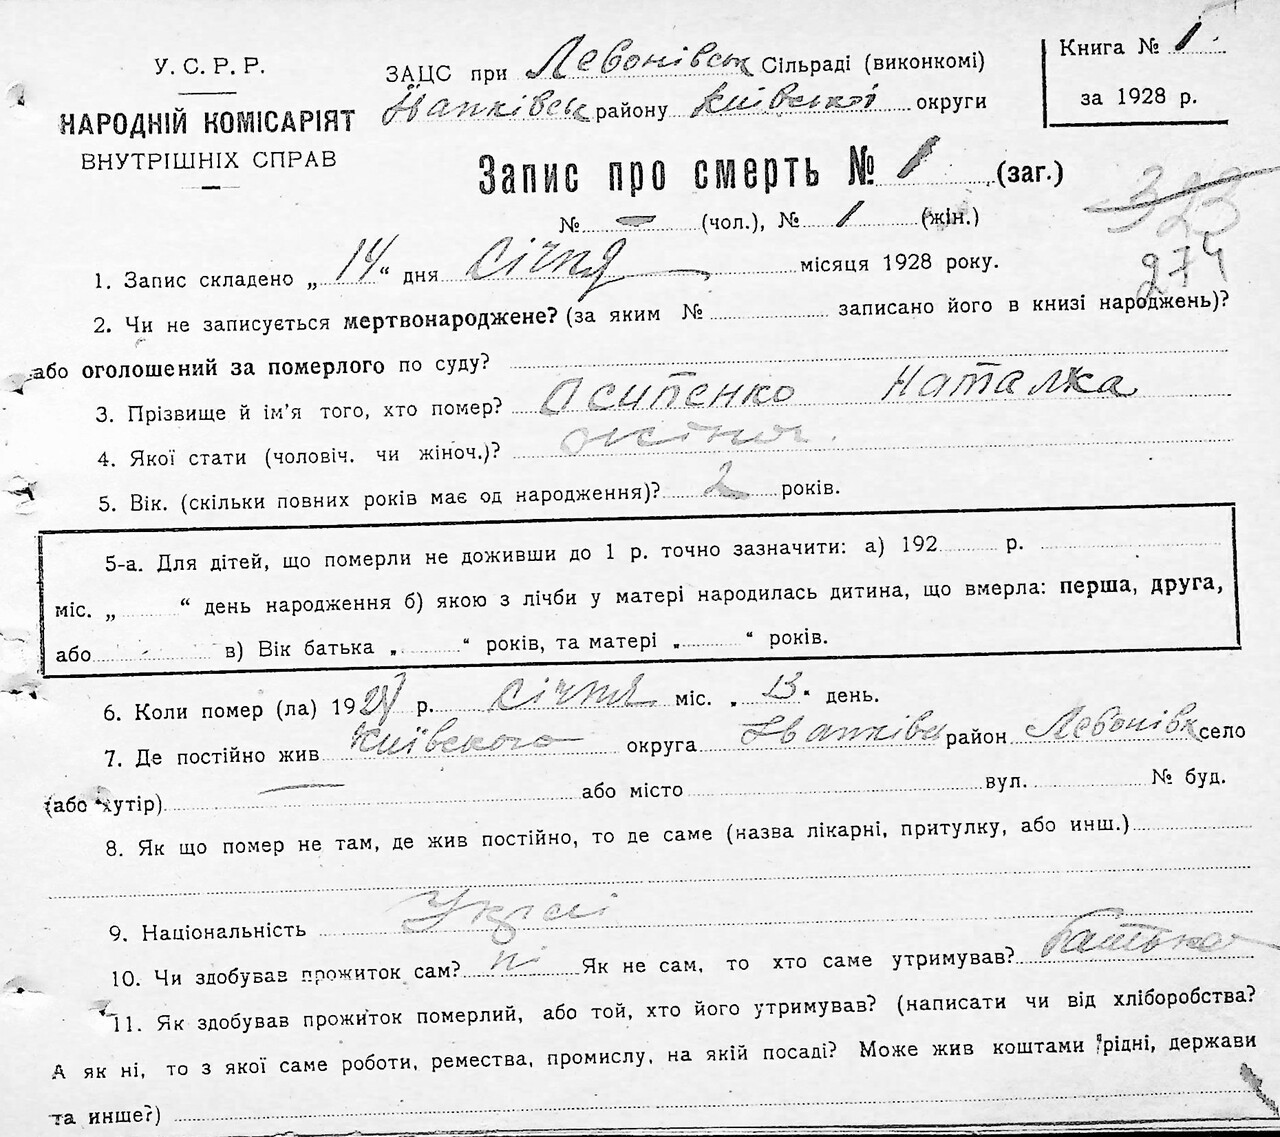 У. С. Р. Р.
НАРОДНІЙ КОМІСАРІЯТ
ВНУТРІШНІХ СПРАВ
ЗАЦС при Левонівськ Сільраді (виконкомі)
Іванківськ району Київської округи
Книга № 1
за 1928 р.
Запис про смерть № 1 (заг.)
№ — (чол.), № 1 (жін.)
323
274
1. Запис складено „ 14 “ дня січня місяця 1928 року.
2. Чи не записується мертвонароджене? (за яким № записано його в книзі народжень)?
або оголошений за померлого по суду?
3. Прізвище й ім'я того, хто помер? Осипенко Наталка
4. Якої стати (чоловіч. чи жіноч.)? жіноч.
5. Вік. (скільки повних років має од народження)? 2 років.
5-а. Для дітей, що померли не доживши до 1 р. точно зазначити: а) 192 р.
міс. „ “ день народження б) якою з лічби у матері народилась дитина, що вмерла: перша, друга,
або в) Вік батька „ “ років, та матері „ “ років.
6. Коли помер (ла) 1928 р. січня міс. „ 13 “ день.
7. Де постійно жив Київського округа Іванківськ район Левонівк село
(або хутір) — або місто вул. № буд.
8. Як що помер не там, де жив постійно, то де саме (назва лікарні, притулку, або инш.)
9. Національність
10. Чи здобував прожиток сам? ні Як не сам, то хто саме утримував? батько
11. Як здобував прожиток померлий, або той, хто його утримував? (написати чи від хліборобства?
А як ні, то з якої саме роботи, ремества, промислу, на якій посаді? Може жив коштами рідні, держави
та инше?)